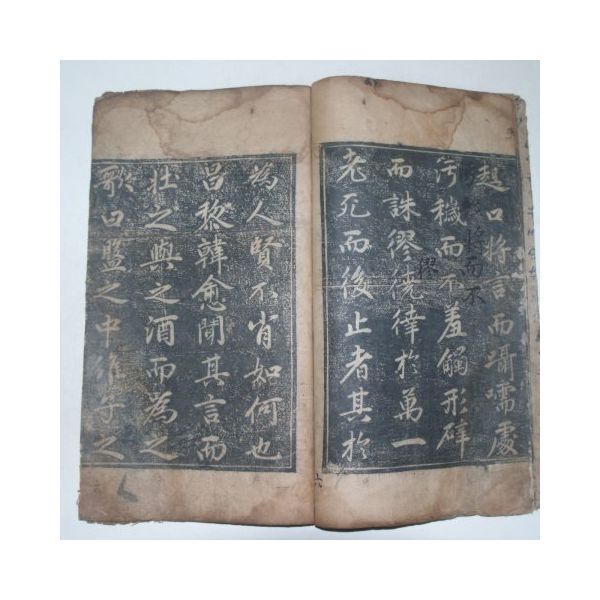 趄口將言而囁嚅處
污穢而不羞觸形辟
而誅僇僥倖於萬一
老死而後止者其於
為人賢不肖如何也
昌黎韓愈聞其言而
壯之與之酒而為之
歌曰盤之中維子之
將而不
六